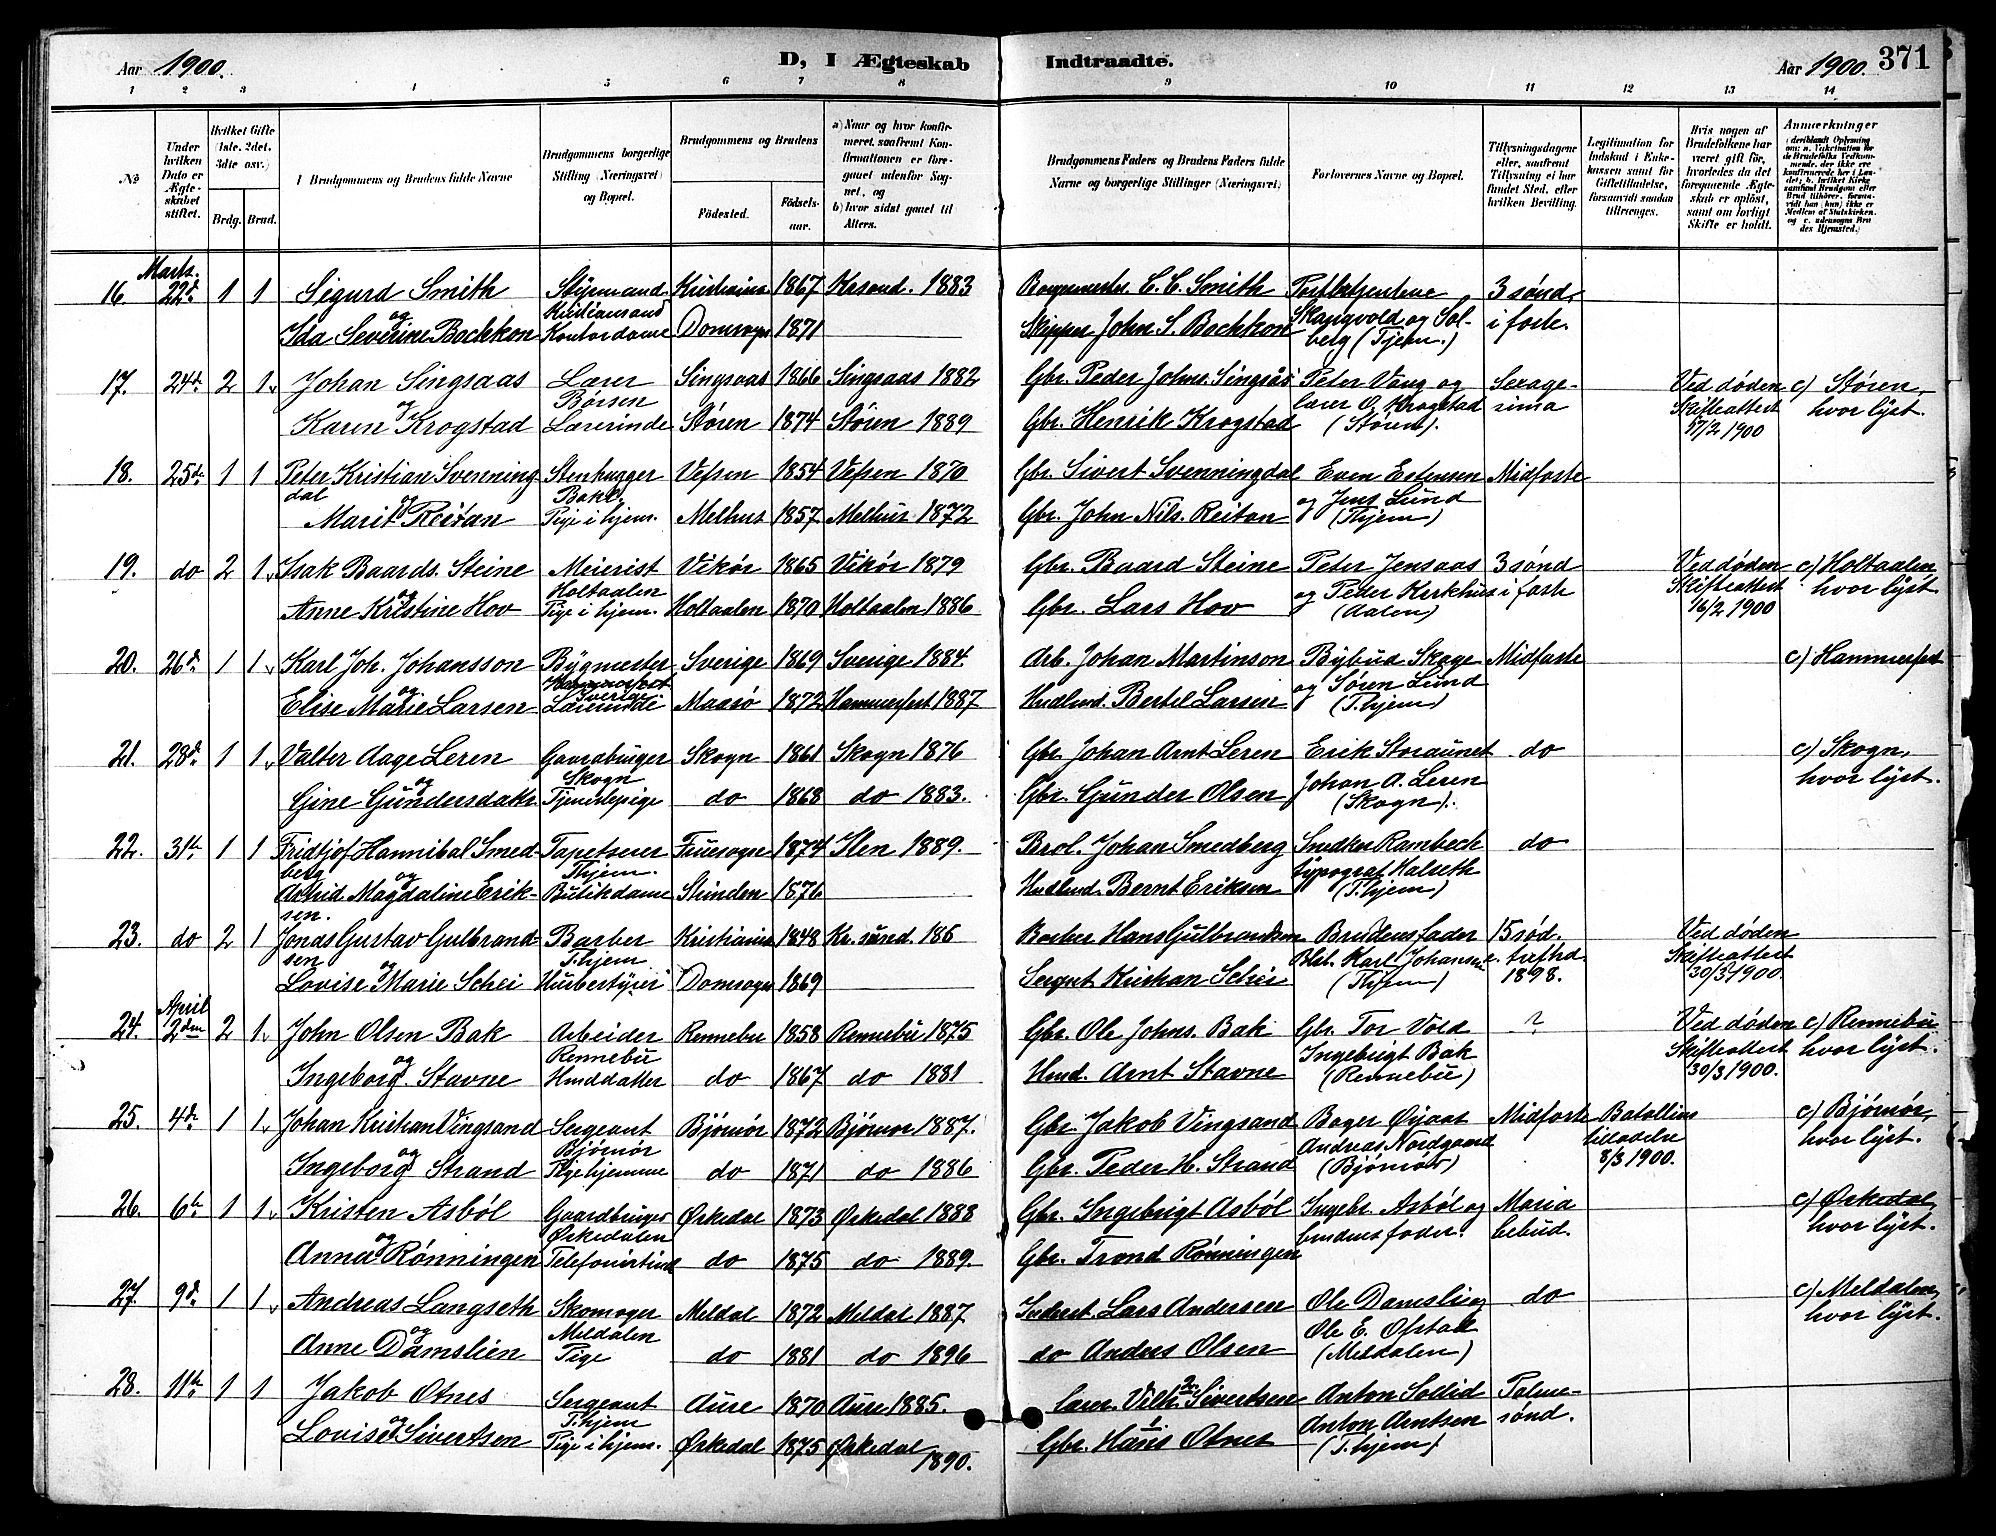 Aar 1900.
D, I Ægteskab Indtraadte.
Aar 1900. 371
1 2 3 4 5 6 7 8 9 10 11 12 13 14
No
Under hvilken Dato er Ægteskabet stiftet.
Hvilket Gifte (1ste, 2det, 3die osv.)
Brdg. Brud.
Brudgommens og Brudens fulde Navne
Brudgommens borgerlige Stilling (Næringsvei) og Bopæl.
Brudgommens og Brudens
Fødested.
Fødsels-aar.
a) Naar og hvor konfirmeret, saafremt Konfirmationen er foregaaet udenfor Sognet, og
b) hvor sidst gaaet til Alters.
Brudgommens Faders og Brudens Faders fulde Navne og borgerlige Stillinger (Næringsvei)
Forlovernes Navne og Bopæl.
Tillysningsdagene eller, saafremt Tillysning ei har fundet Sted, efter hvilken Bevilling.
Legitimation for Indskud i Enkekassen samt for Giftetilladelse, forsaavidt saadan tiltrænges.
Hvis nogen af Brudefolkene har været gift før, hvorledes da det foregaaende Ægteskab er opløst, samt om lovligt Skifte er holdt.
Anmærkninger
16. Marts. 22d 1 1 Sigurd Smith Styrmand Kristiansand Kristiania 1867 Krsand. 1883 C. C. Smith 3 sønd. i faste.
og Ida Severine Bochkon Kontordame Domsogn 1871 Skipper John S. Bochkon Skangvold og Solberg (Tjem.)
17. 24de 2 1 Johan Singsaas Lærer Børsen Singsaas 1866 Singsaas 1882 Gbr. Peder Johns. Singsås Peter Vang og Sexagesima Ved døden Skifteattest 17/2 1900 c) Støren, hvor lyst.
og Karen Krogstad Lærerinde Støren 1874 Støren 1889 Gbr. Henrik Krogstad lærer O. Krogstad (Støren).
18. 25de 1 1 Peter Kristian Svenningdal Stenhugger Bakl. Vefsen 1854 Vefsen 1870 Gbr. Sivert Svenningdal Even Estensen Midfaste
og Marit Reitan Pige i hjem. Melhus 1857 Melhus 1872 Gbr. John Nils. Reitan og Jens Lund (Thjem)
19. do 2 1 Isak Baards. Steine Meierist Holtaalen Vikør 1865 Vikør 1879 Gbr. Baard Steine Peter Jensaas 3 sønd i faste Ved døden Skifteattest 16/2 1900 c) Holtaalen hvor lyst
og Anne Kristine Hov Pige i hjem. Holtaalen 1870 Holtaalen 1886 Gbr. Lars Hov og Peder Kirkhus (Aalen)
20. 26de 1 1 Karl Joh. Johansson Bygmester Hammerfest Sverige Sverige 1869 Sverige 1884. Arb. Johan Martinson Bybud Skage Midfaste c) Hammerfest
og Elise Marie Larsen Lærerinde Maasø 1872 Hammerfest 1887 Husmd. Bertel Larsen og Søren Lund (T.hjem)
21. 28de 1 1 Valter Aage Leren Gaardbruger Skogn Skogn 1861 Skogn 1876 Gbr. Johan Arnt Leren Erik Storaunet do c) Skogn, hvor lyst.
og Gine Gundersdatr. Tjenestepige do 1868 do 1883. Gbr. Gunder Olsen Johan A. Leren (Skogn).
22. 31te 1 1 Fridtjof Hannibal Smedberg Tapetserer Thjem. Fruesogn 1874 Ilen 1889. Johan Smedberg Snedker Rambech do
og Astrid Magdaline Eriksen. Butikdame Strinden 1876 Bernt Eriksen typograf Halseth (T.hjem)
23. do 2 1 Jonas Gustav Gulbrandsen Barber T.hjem Kristiania 1848 Kr.sund. 186 Barber Hans Gulbrandsen Brudens fader 15 sød. e. trefhd. 1898. Ved døden Skifteattest 30/3 1900.
og Lovise Marie Schei Husbestyrer Domsogn 1869 Sergeant Kristian Schei Karl Johansen (T.hjem)
24. April 2den 2 1 John Olsen Bak Arbeider Rennebu Rennebu 1858 Rennebu 1875 Gbr. Ole Johns. Bak Gbr. Tor Vold ? Ved døden Skifteattest 30/3 1900. c) Rennebu hvor lyst.
og Ingeborg Stavne Husdatter do 1867 do 1881 Husmd. Arnt Stavne Ingebrigt Bak (Rennebu)
25. 4de 1 1 Johan Kristian Vingsand Sergeant Bjørnør Bjørnør 1872 Bjørnør 1887. Gbr. Jakob Vingsand Bager Midfaste Batallions tilladelse 8/3 1900. c) Bjørnør, hvor lyst.
og Ingeborg Strand Pige hjemme do 1871 do 1886 Gbr. Peder H. Strand Andreas Nordgaard (Bjørnør)
26. 6te 1 1 Kristen Asbøl Gaardbruger Ørkedalen Ørkedal 1873 Ørkedal 1888 Gbr. Ingebrigt Asbøl Ingebr. Asbøl og Maria bebud. c) Ørkedal, hvor lyst.
og Anna Rønningen Telefonistinde do 1875 do 1889. Gbr. Trond Rønningen brudens fader.
27. 9de 1 1 Andreas Langseth Skomager Meldalen Meldal 1872 Meldal 1887 Inderst Lars Andersen Ole Damslien do c) Meldalen, hvor lyst.
og Anne Damslien Pige do 1881 do 1896 do Anders Olsen Ole E. Ofstad (Meldalen)
28. 11te 1 1 Jakob Otnes Sergeant T.hjem Aure 1870 Aure 1885. 2. Vilh. Sivertsen Anton Sollid Palmesønd.
og Lovise Sivertsen Pige i hjem. Ørkedal 1875 Ørkedal 1890. 1. Gbr. Hans Otnes Anton Arntsen (T.hjem)